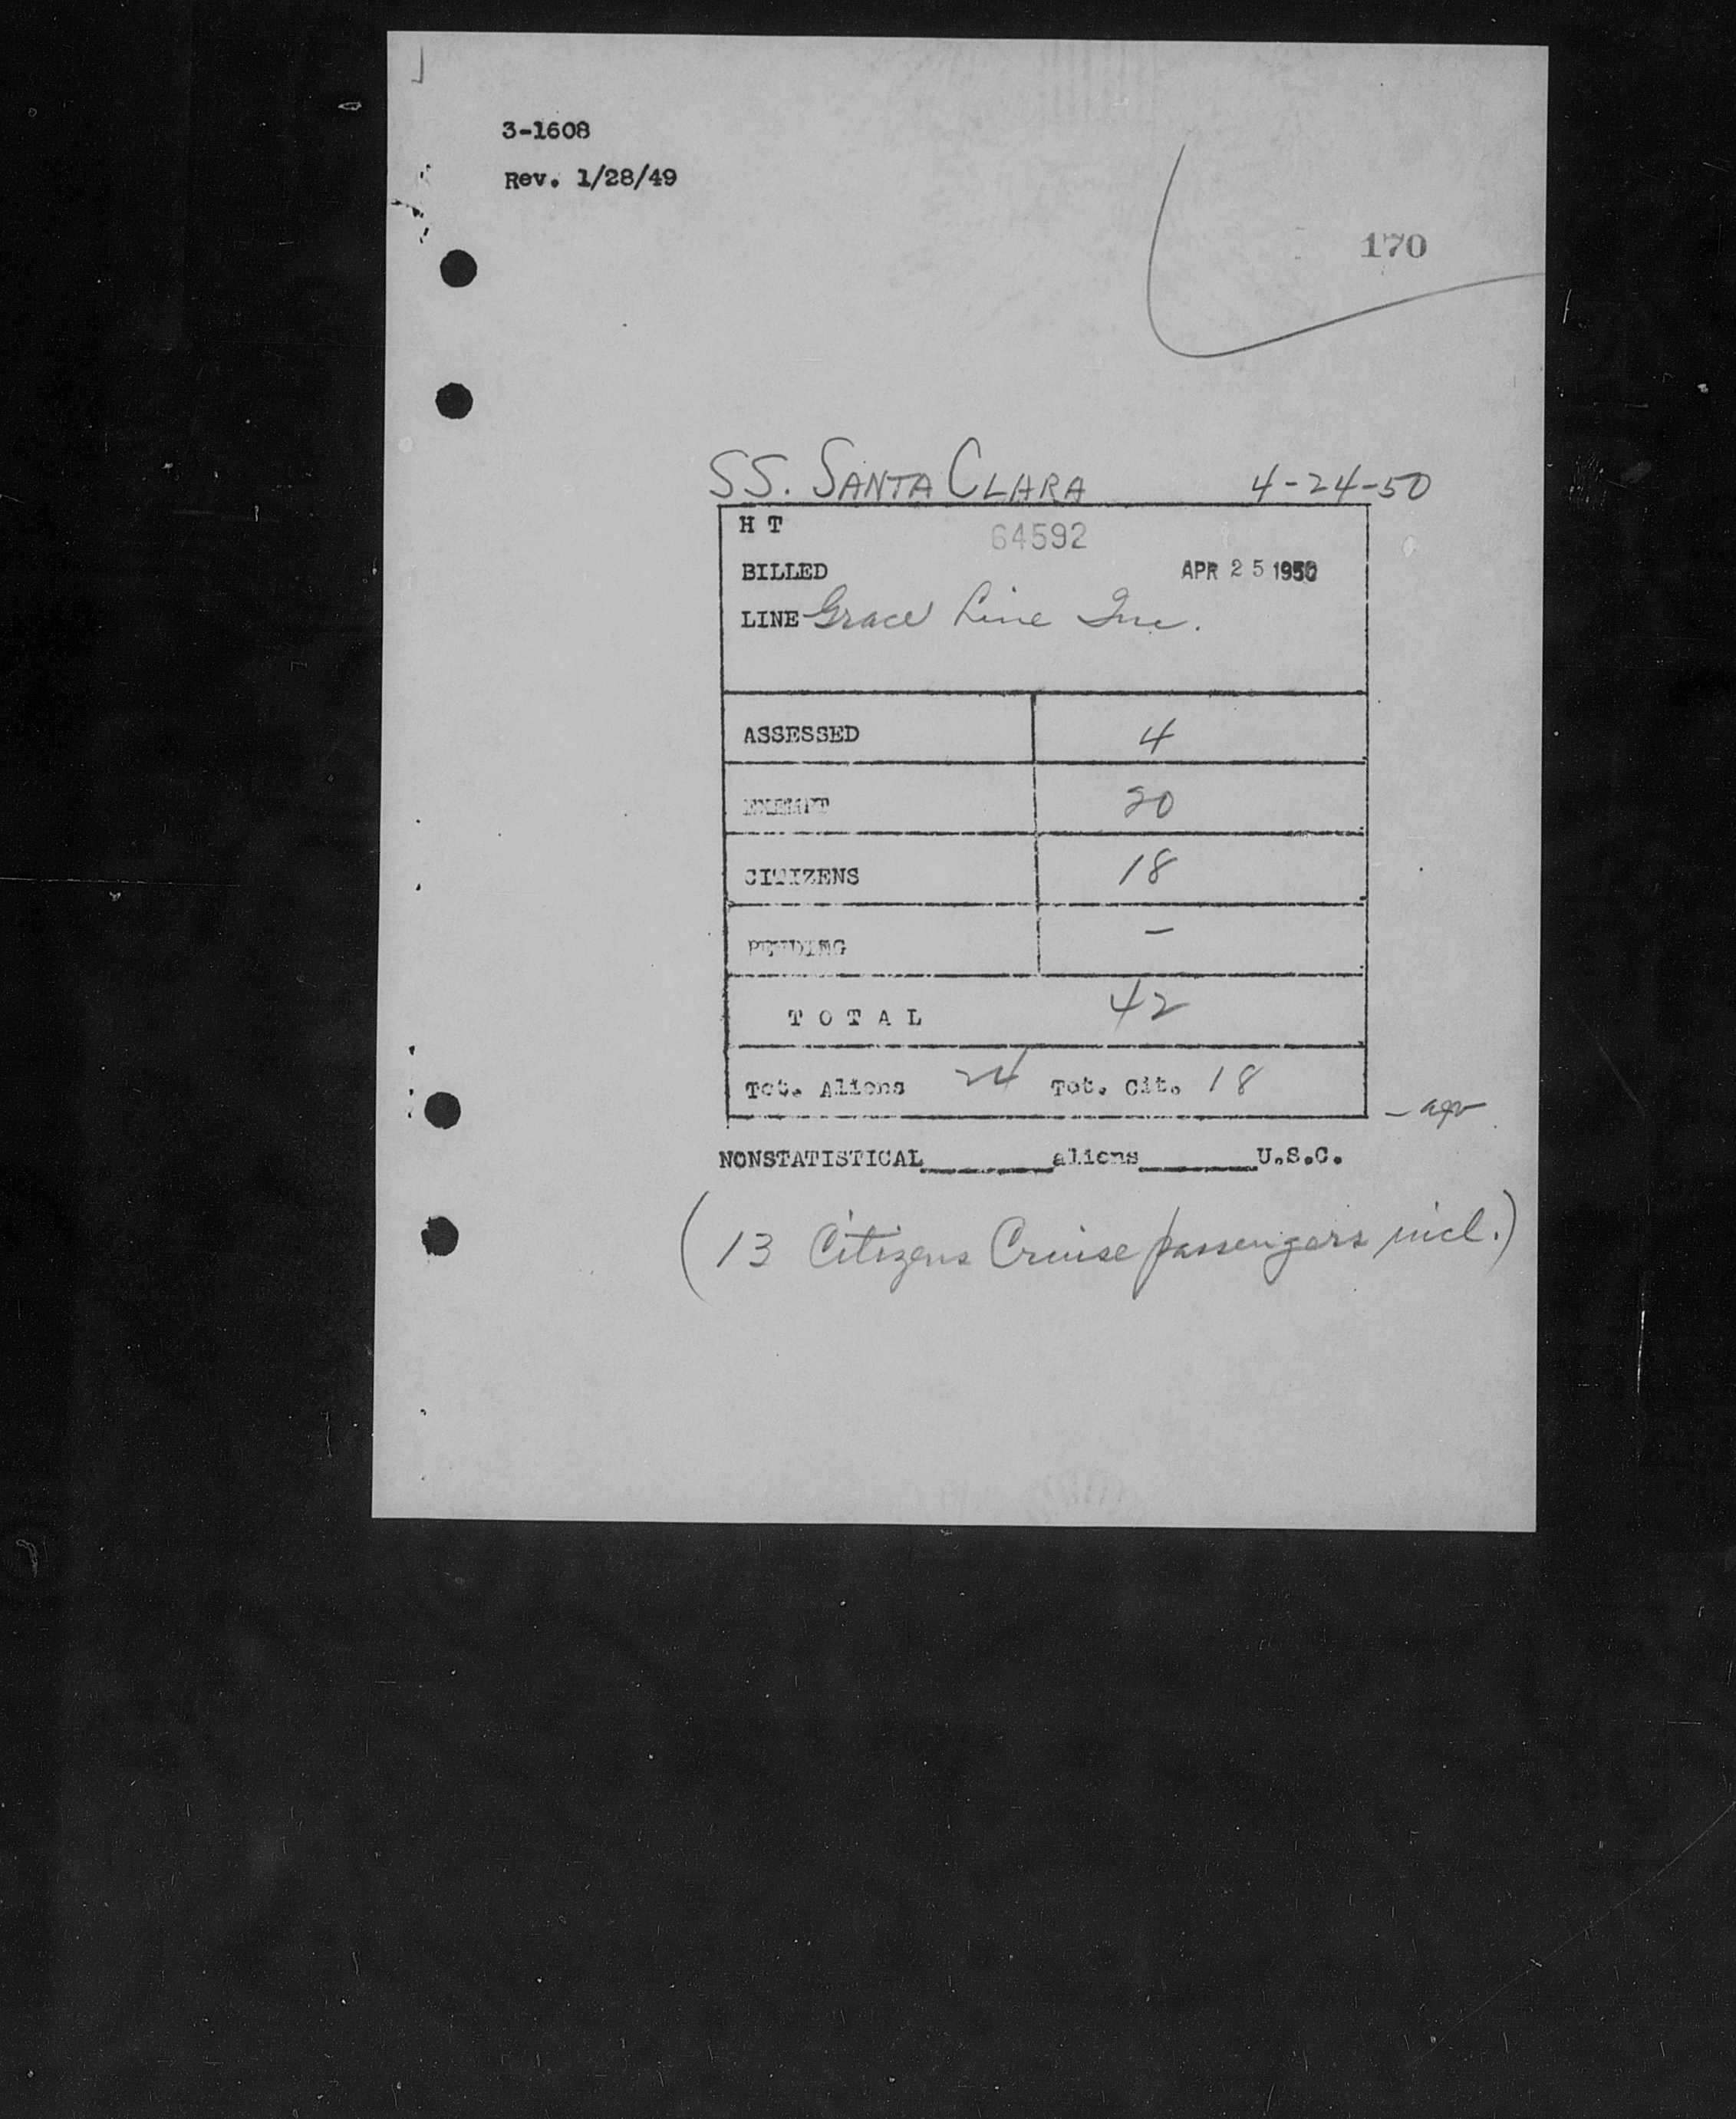 3-1608
Rev. 1/28/49
170
SS. SANTA CLARA 4-24-50
H T 64592
BILLED APR 25 1950
LINE Grace Line Inc.
ASSESSED 4
EXEMPT 20
CITIZENS 18
PENDING –
TOTAL 42
Tot. Aliens 24 Tot. Cit. 18
NONSTATISTICAL________aliens________U.S.C.
(13 Citizens Cruise passengers incl.)